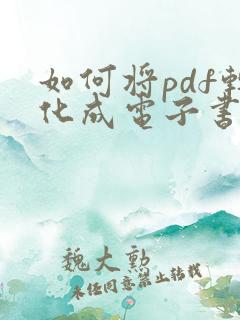 如何将pdf转
化成电子书
魏大勲
未经同意禁止转载